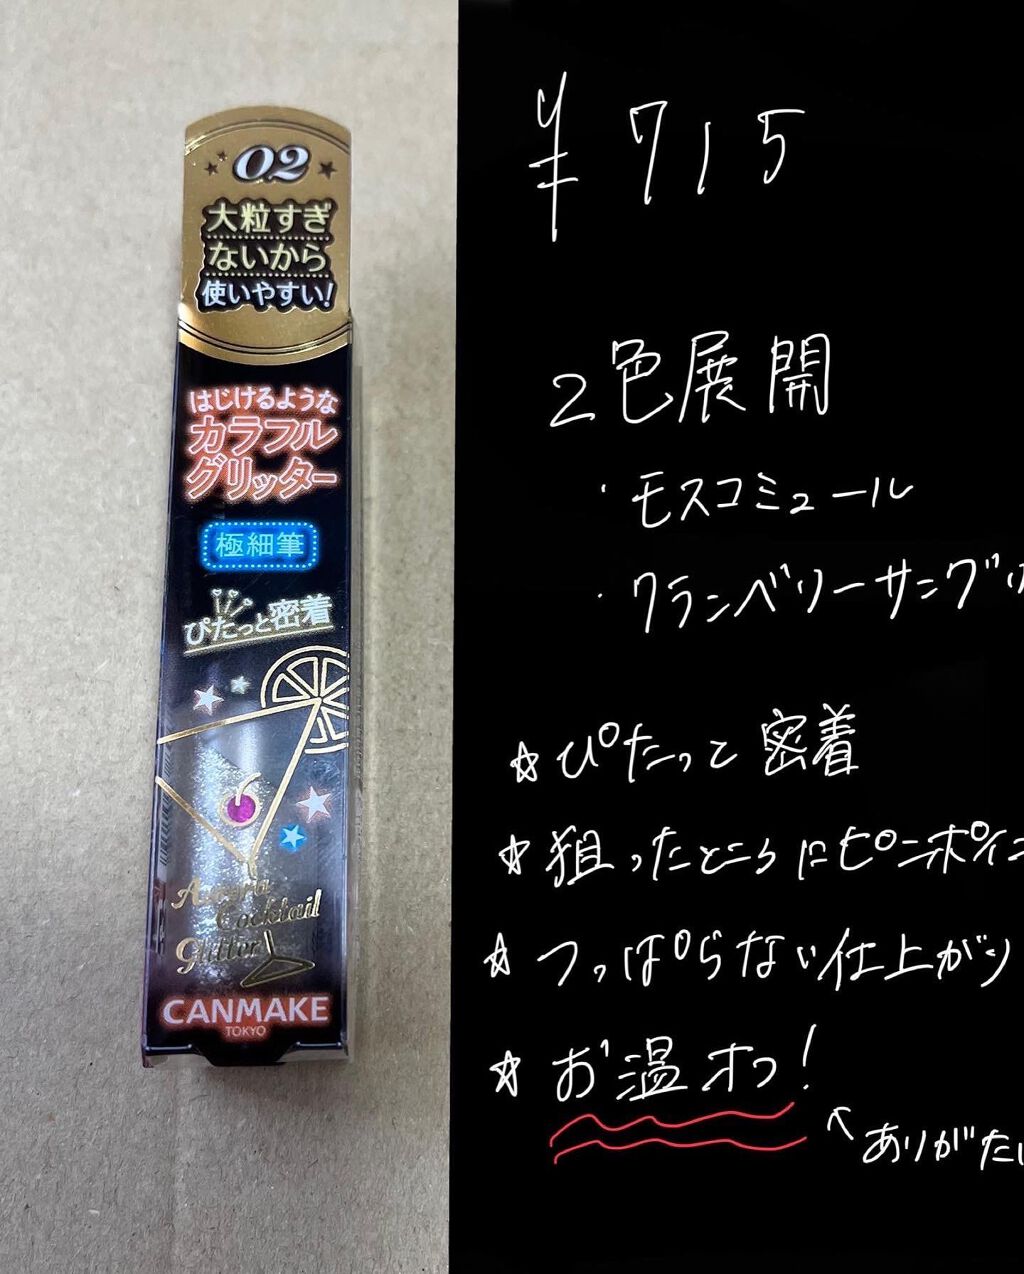 02
大粒すぎ
ないから
使いやすい!
はじけるような
カラフル
グリッター
極細筆
ぴたっと密着
Aurora
Cocktail
Glitter
CANMAKE
TOKYO
¥715
2色展開
・モスコミュール
・クランベリーサングリ
☆ぴたっと密着
☆狙ったところにピンポイン
☆つっぱらない仕上がり
☆お湯オフ!
↖ありがたい